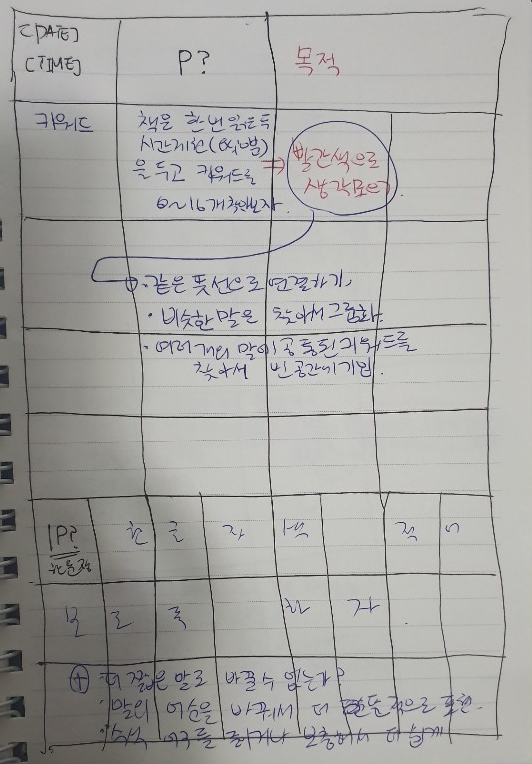 [DATE]
[TIME]
P?
목적
키워드
책을 한 번 읽은 후
시간제한
을 두고 키워드를
6~16개 찾아보자.
⇒ 빨간색으로
생각모으기
· 같은 뜻 선으로 연결하기,
· 비슷한 말은 찾아서 그룹화.
· 여러 개의 말이 공통된 키워드를
찾아서 빈 공간에 기입.
1P?
한 글 자 씩 적 어
보 도 록 하 자 .
⊕ 더 짧은 말로 바꿀 수 없는가?
· 말의 어순을 바꿔서 더 으로 표현.
· 어구를 더 쉽게